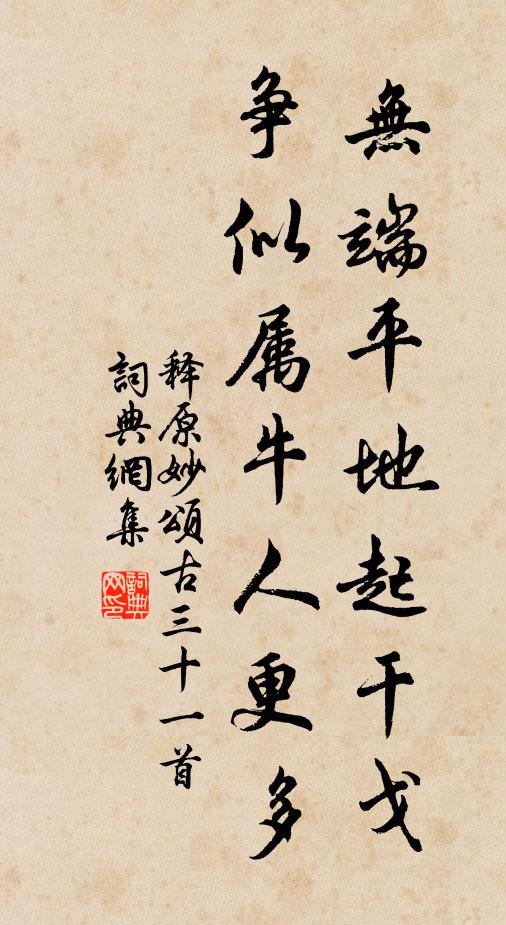 無端平地起干戈
争似属牛人更多
释原妙頌古三十一首
詞典網集
詞典网印